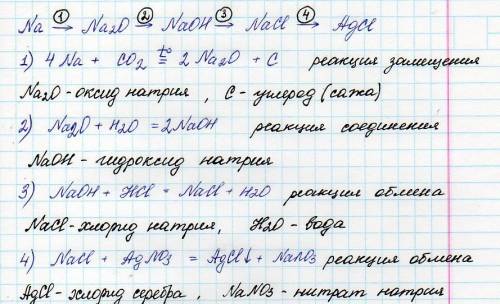 Na →① Na2O →② NaOH →③ NaCl →④ AgCl
1) 4 Na + CO2 t°= 2 Na2O + C реакция замещения
Na2O - оксид натрия , C - углерод (сажа)
2) Na2O + H2O = 2NaOH реакция соединения
NaOH - гидроксид натрия
3) NaOH + HCl = NaCl + H2O реакция обмена
NaCl - хлорид натрия, H2O - вода
4) NaCl + AgNO3 = AgCl↓ + NaNO3 реакция обмена
AgCl - хлорид серебра , NaNO3 - нитрат натрия